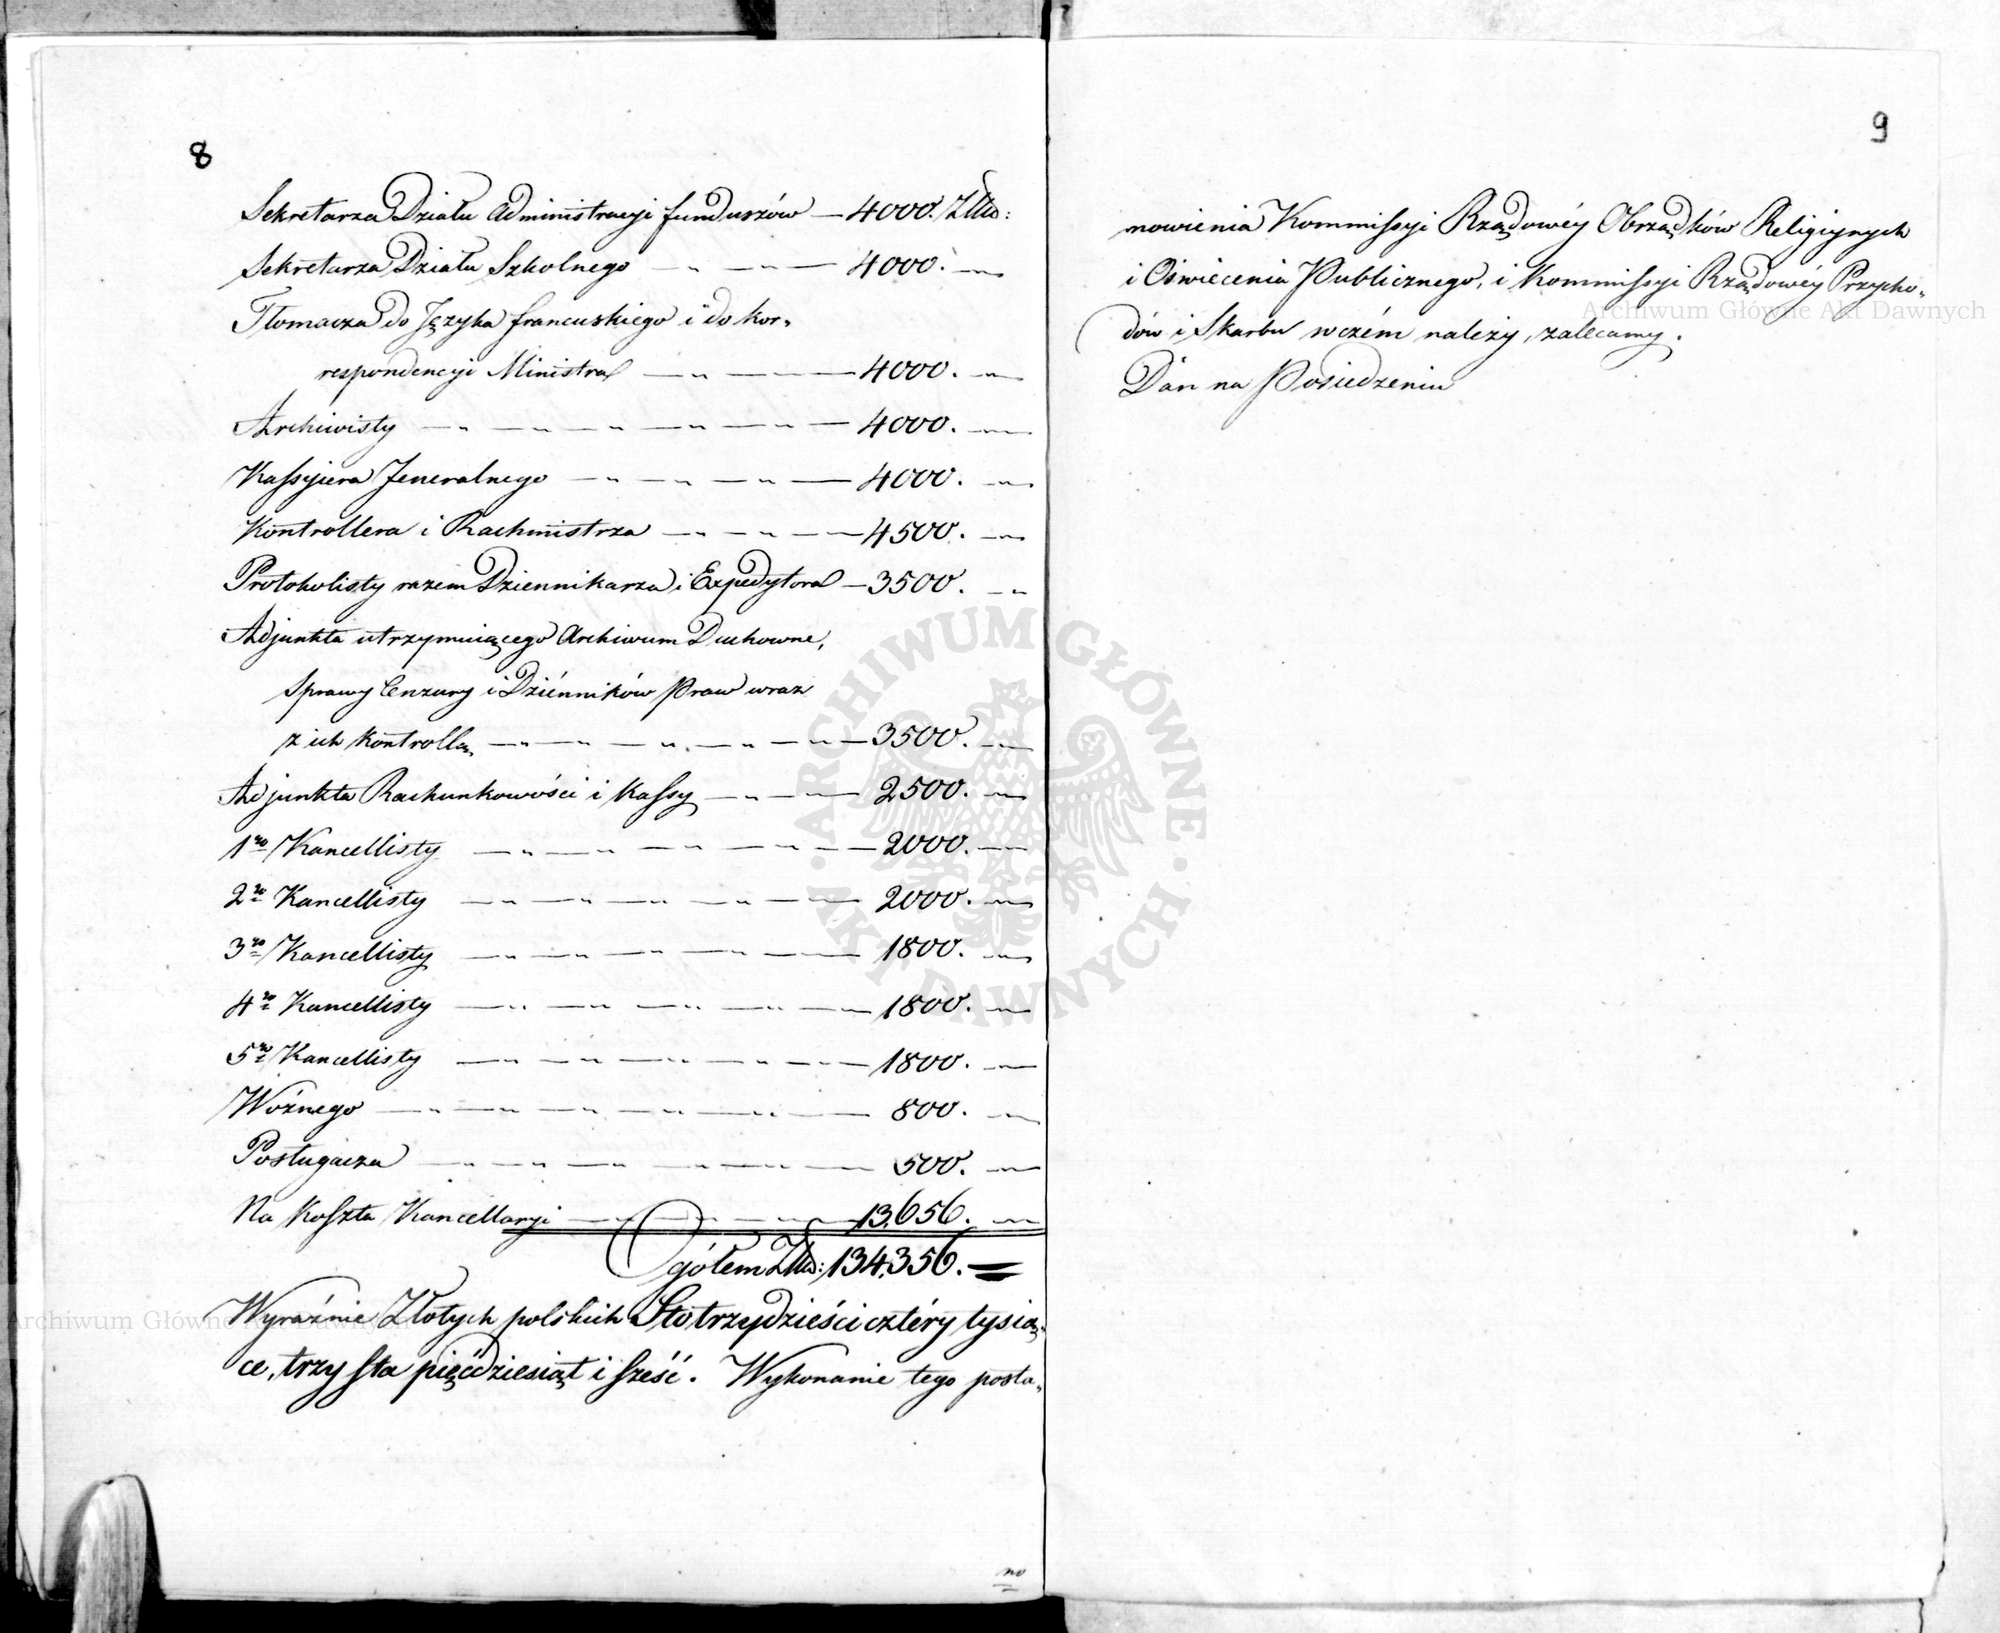 8
Sekretarza Działu Administracyi funduszów — 4000. Złł:
Sekretarza Działu Szkolnego — „ — „ — 4000. — „
Tłomacza do Języka francuskiego i do kor„
respondencyi Ministra — „ — „ — 4000. — „
Archiwisty — „ — „ — „ — „ — 4000. — „
Kassyiera Jeneralnego — „ — „ — „ — 4000. — „
Kontrollera i Rachmistrza — „ — „ — 4500. — „
Protokolisty razem Dziennikarza i Expedytora — 3500. — „
Adjunkta utrzymuiącego Archiwum Duchowne,
Sprawy Cenzury i Dziénników Praw wraz
z ich kontrollą — „ — „ — „ — „ — 3500. — „
Adjunkta Rachunkowości i Kassy — „ — „ — 2500. — „
1go Kancellisty — „ — „ — „ — „ — 2000. — „
2go Kancellisty — „ — „ — „ — „ — 2000. — „
3go Kancellisty — „ — „ — „ — „ — 1800. — „
4go Kancellisty — „ — „ — „ — „ — 1800. — „
5go Kancellisty — „ — „ — „ — „ — 1800. — „
Woźnego — „ — „ — „ — „ — „ — 800. — „
Posługacza — „ — „ — „ — „ — 500. — „
Na Koszta Kancellaryi — „ — „ — „ — 13,656. — „
Ogółem Złł: 134,356. =
Wyraźnie Złotych polskich Sto trzydzieści cztéry tysią„
ce, trzysta pięćdziesiąt i sześć. Wykonanie tego posta„
no
9
nowienia Kommissyi Rządowéy Obrządków Religiynych
i Oświecenia Publicznego, i Kommissyi Rządowéy Przycho„
dów i Skarbu w czém należy, zalecamy.
Dan na Posiedzeniu
ARCHIWUM GŁÓWNE AKT DAWNYCH
Archiwum Główne Akt Dawnych
Archiwum Główne Akt Dawnych